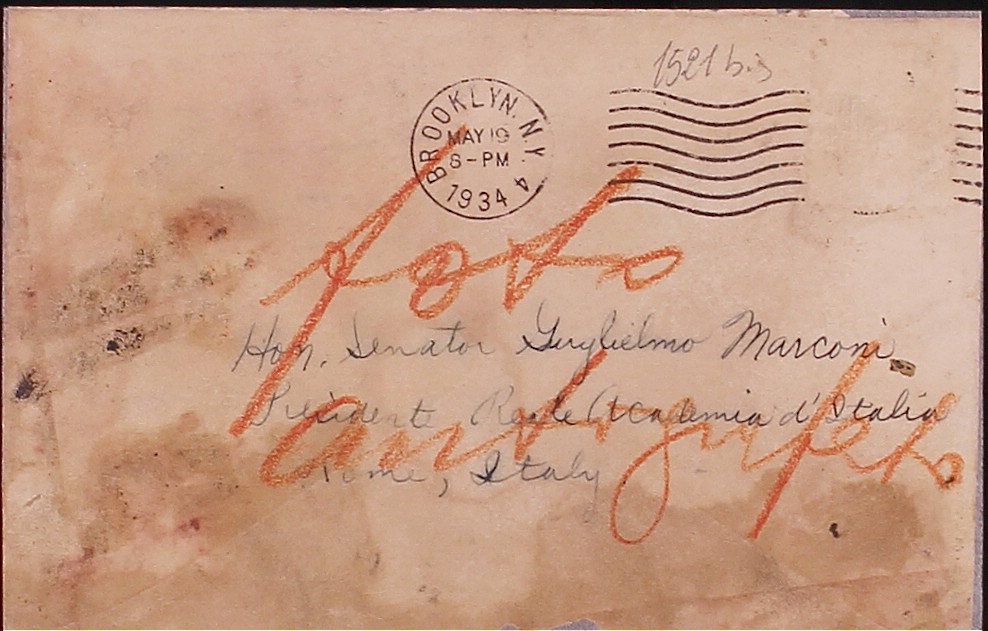 1521 bis
BROOKLYN. N.Y.
MAY 19
8-PM
1934
4
foto
Hon. Senator Guglielmo Marconi
Presidente Reale Academia d'Italia
autografo
Rome, Italy